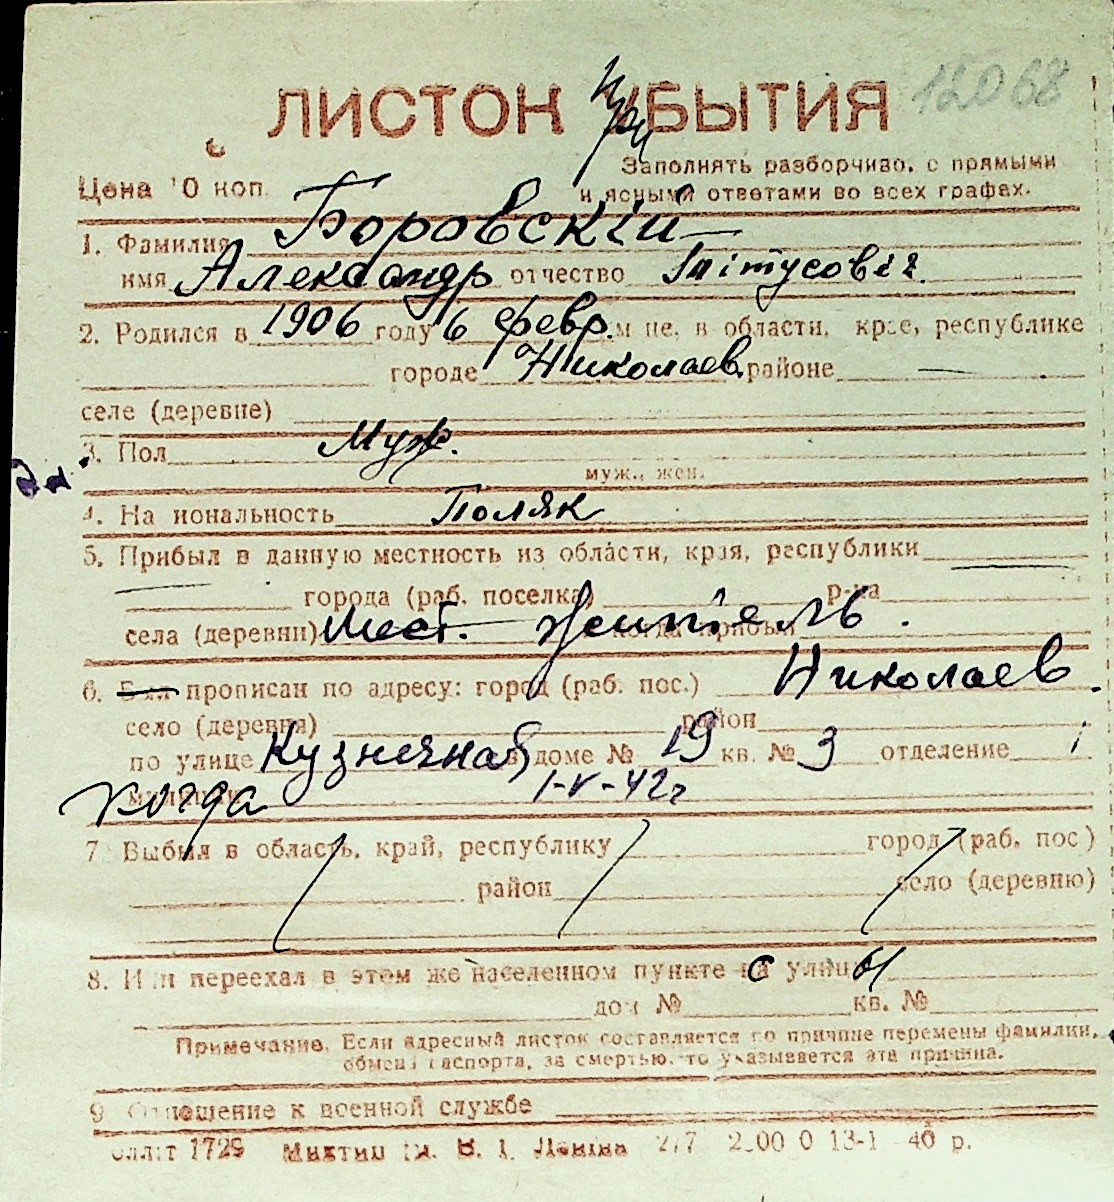 12068
ЛИСТОН ПРИБЫТИЯ
Цена 10 коп.
Заполнять разборчиво, с прямыми
и ясными ответами во всех графах.
1. Фамилия Боровскій
имя Александр отчество Тітусовіч
2. Родился в 1906 году 6 февр. м це, в области, крае, республике
городе Николаев районе —
селе (деревне)
3. Пол Муж.
муж., жен.
4. Национальность Поляк
5. Прибыл в данную местность из области, края, республики —
— города (раб. поселка) р-на
села (деревни) Мест. житель.
6. Был прописан по адресу: город (раб. пос.) Николаев.
село (деревня) район
по улице Кузнечная в доме № 19 кв. № 3 отделение 1
милиции когда 1-V-42г
7 Выбыл в область, край, республику город (раб. пос)
район село (деревню)
8. Или переехал в этом же населенном пункте с улицы
дом № кв. №
Примечание. Если адресный листок составляется по причине перемены фамилии,
обмена паспорта, за смертью, то указывается эта причина.
9 Отношение к военной службе
1729 Ленина 277 13-1 40 р.